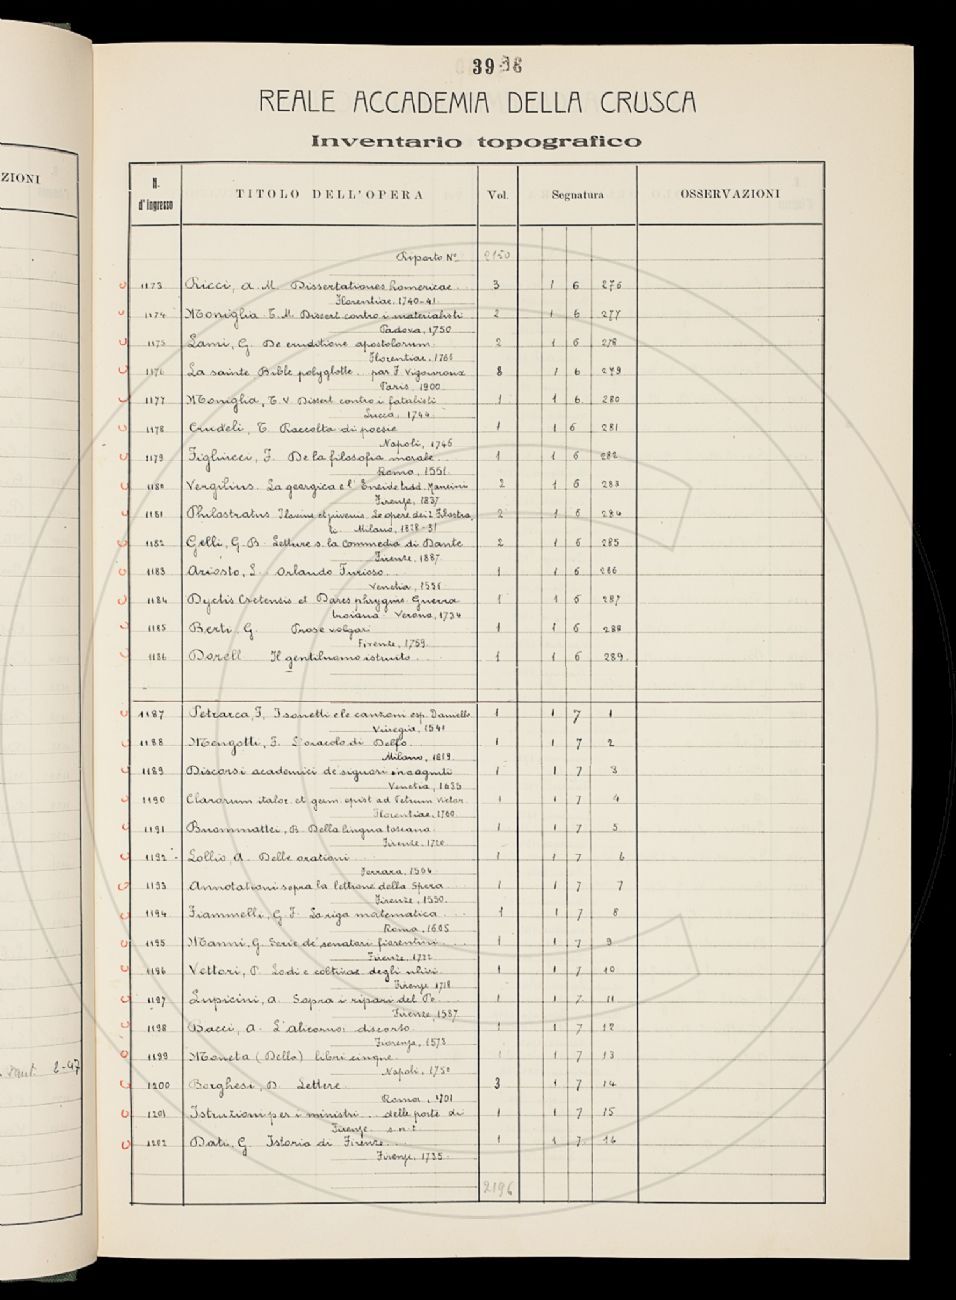 39
REALE ACCADEMIA DELLA CRUSCA
Inventario topografico
ZIONI
N. d'ingresso TITOLO DELL'OPERA Vol. Segnatura OSSERVAZIONI
Riporto N° 2150
1173 Ricci, A. M. Dissertationes homericae 3 1 6 276
Florentiae, 1740-41
1174 Moniglia T. M. Dissert contro i materialisti 2 1 6 277
Padova, 1750
1175 Lami, G. De eruditione apostolorum 2 1 6 278
Florentiae, 1766
1176 La sainte Bible polyglotte.. par F. Vigouroux 8 1 6 279
Paris, 1900
1177 Moniglia, T. V. Dissert contro i fatalisti 1 1 6 280
Lucca, 1744
1178 Crudeli, T. Raccolta di poesie 1 1 6 281
Napoli, 1746
1179 Figliucci, F. De la filosofia morale 1 1 6 282
Roma, 1551.
1180 Vergilius. La georgica e l'Eneide trad. Mancini 2 1 6 283
Firenze, 1837
1181 Philostratus et juvenis. Le opere dei 2 Filostra, 2 1 6 284
ti. Milano, 1828-31
1182 Gelli, G. B. Letture s. la commedia di Dante 2 1 6 285
Firenze, 1887.
1183 Ariosto, L. Orlando Furioso 1 1 6 286
Venetia, 1556
1184 Dyctis Cretensis et Dares phrygius. Guerra 1 1 6 287
troiana Verona, 1734
1185 Berti, G. Prose volgari 1 1 6 288
Firenze, 1759.
1186 Dorell Il gentiluomo istruito.... 1 1 6 289.
1187 Petrarca, F. I sonetti e le canzoni esp. Daniello 1 1 7 1
Vinegia, 1541
1188 Mengotti, F. L'oracolo di Delfo 1 1 7 2
Milano, 1819.
1189 Discorsi academici de' signori incogniti 1 1 7 3
Venetia, 1635
1190 Clarorum italor. et germ. epist ad Petrum Victor. 1 1 7 4
Florentiae, 1760.
1191 Buommattei, B. Della lingua toscana. 1 1 7 5
Firenze, 1720
1192 Lollio, A. Delle orationi 1 1 7 6
Ferrara, 1564
1193 Annotationi sopra la lettione della Spera 1 1 7 7
Firenze, 1550.
1194 Fiammelli, G. F. La riga matematica 1 1 7 8
Roma, 1605
1195 Manni, G. Serie de' senatori fiorentini 1 1 7 9
Firenze, 1722
1196 Vettori, P. Lodi e coltivaz. degli ulivi 1 1 7 10
Firenze 1718
1197 Lupicini, A. Sopra i ripari del Po 1 1 7 11
Firenze, 1587
1198 Bacci, A. L'alicorno: discorso 1 1 7 12
Fiorenza, 1573
1199 Moneta (Della) libri cinque 1 1 7 13
Napoli, 1750
1200 Borghesi, D. Lettere 3 1 7 14
Roma, 1701
1201 Istruzioni per i ministri .. delle porte di 1 1 7 15
Firenze. s.n.t.
1202 Dati, G. Istoria di Firenze 1 1 7 16
Firenze, 1735.
2196
2-47